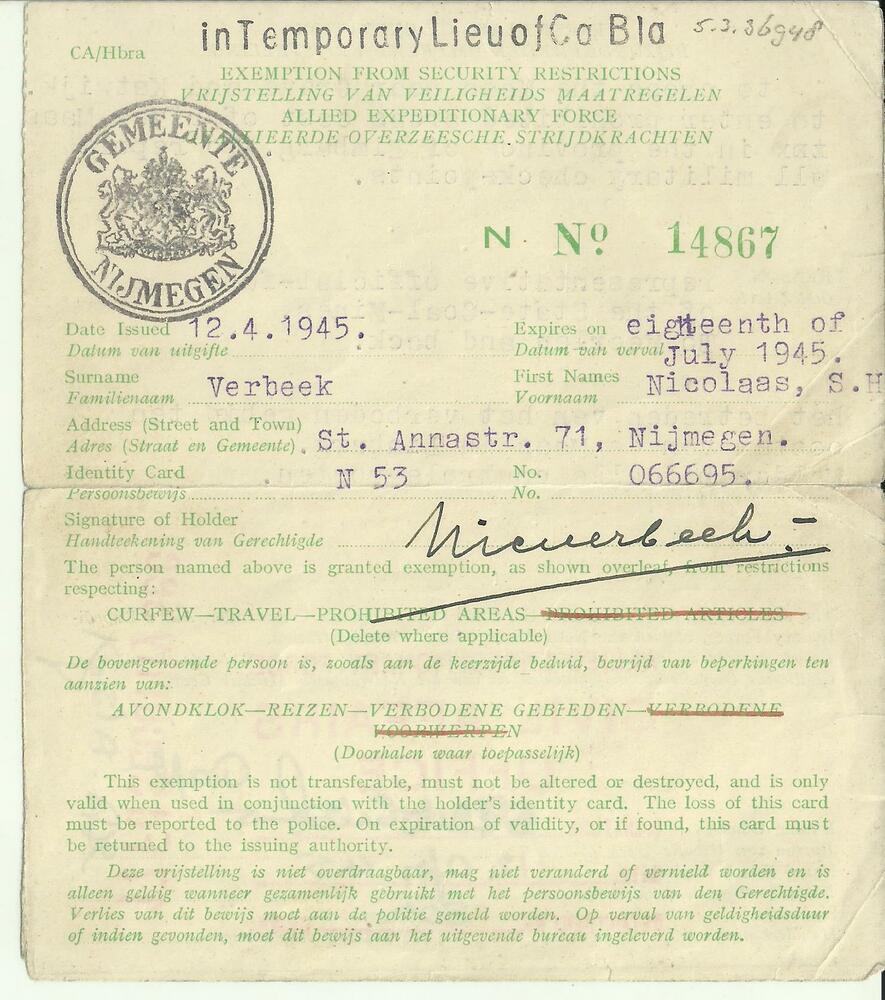 in Temporary Lieu of Ca Bla
5.3.36948
CA/Hbra
EXEMPTION FROM SECURITY RESTRICTIONS
VRIJSTELLING VAN VEILIGHEIDS MAATREGELEN
ALLIED EXPEDITIONARY FORCE
GEALLIEERDE OVERZEESCHE STRIJDKRACHTEN
GEMEENTE
NIJMEGEN
N. Nº 14867
Date Issued 12.4.1945. Expires on eighteenth of
Datum van uitgifte Datum van verval July 1945.
Surname Verbeek First Names Nicolaas, S.H
Familienaam Voornaam
Address (Street and Town)
Adres (Straat en Gemeente) St. Annastr. 71, Nijmegen.
Identity Card N 53 No. 066695.
Persoonsbewijs No.
Signature of Holder
Handteekening van Gerechtigde
The person named above is granted exemption, as shown overleaf, from restrictions
respecting:
CURFEW—TRAVEL—PROHIBITED AREAS—PROHIBITED ARTICLES
(Delete where applicable)
De bovengenoemde persoon is, zooals aan de keerzijde beduid, bevrijd van beperkingen ten
aanzien van:
AVONDKLOK—REIZEN—VERBODENE GEBIEDEN—VERBODENE
VOORWERPEN
(Doorhalen waar toepasselijk)
This exemption is not transferable, must not be altered or destroyed, and is only
valid when used in conjunction with the holder's identity card. The loss of this card
must be reported to the police. On expiration of validity, or if found, this card must
be returned to the issuing authority.
Deze vrijstelling is niet overdraagbaar, mag niet veranderd of vernield worden en is
alleen geldig wanneer gezamenlijk gebruikt met het persoonsbewijs van den Gerechtigde.
Verlies van dit bewijs moet aan de politie gemeld worden. Op verval van geldigheidsduur
of indien gevonden, moet dit bewijs aan het uitgevende bureau ingeleverd worden.